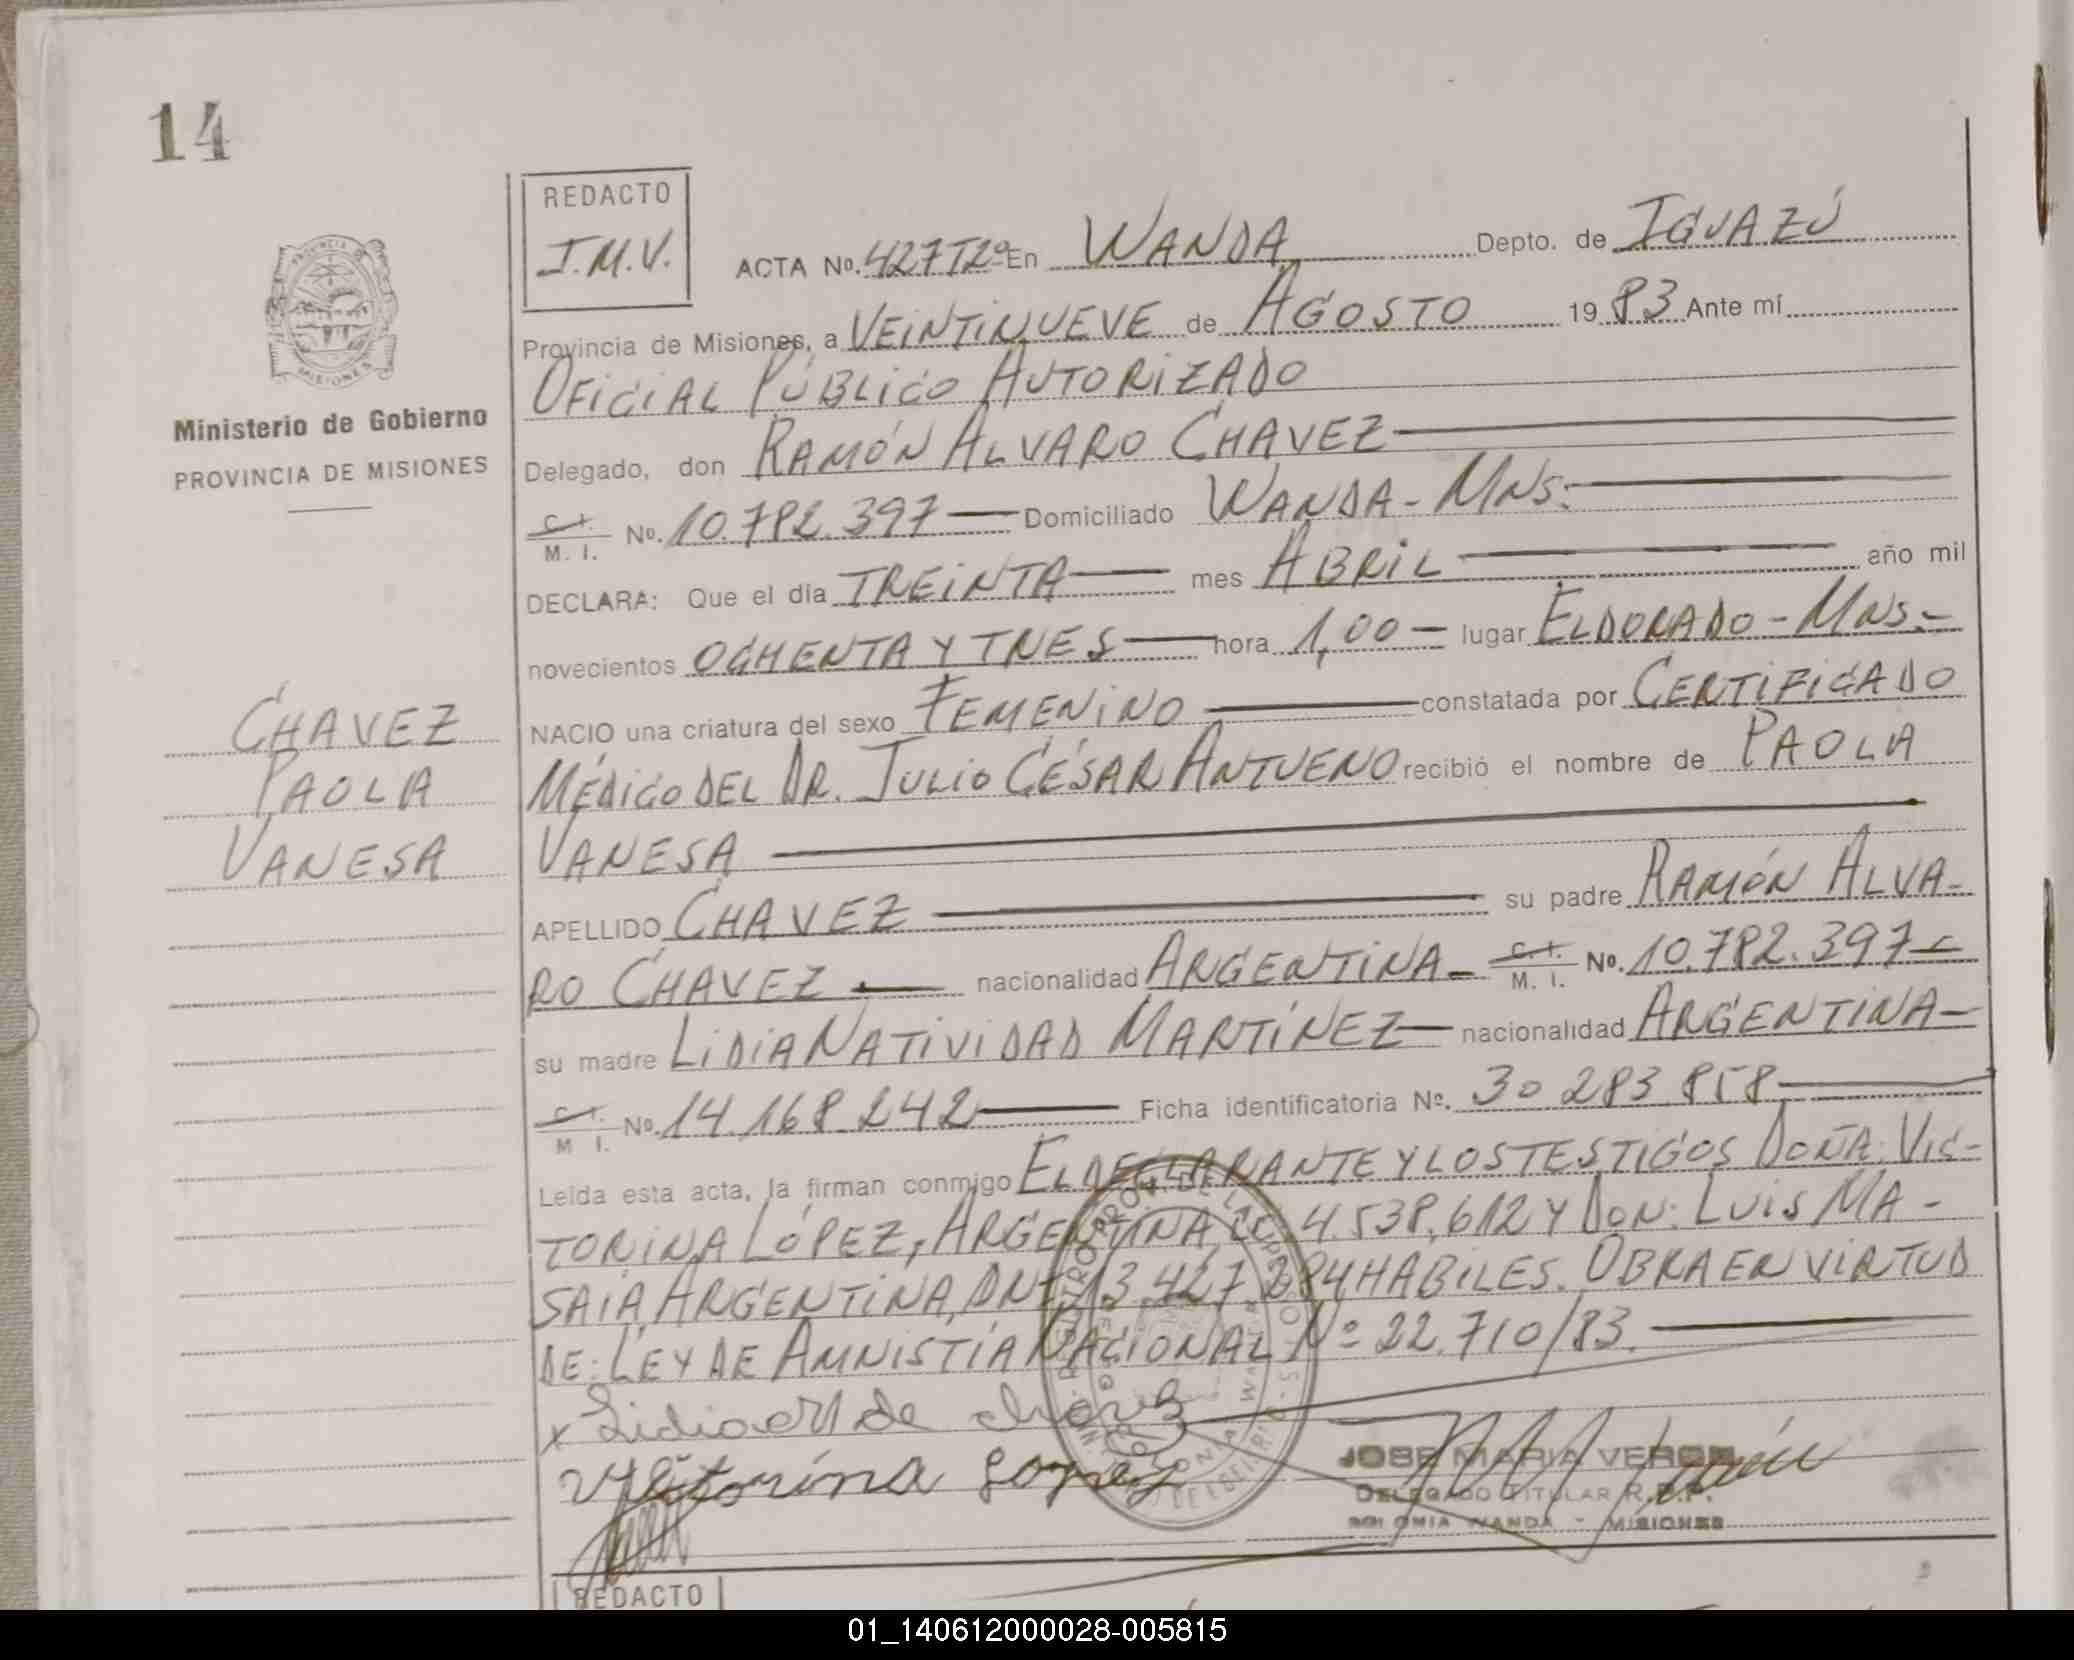 14
REDACTO
J.M.V.
ACTA No. 427T2º En WANDA Depto. de IGUAZÚ
Provincia de Misiones, a VEINTINUEVE de AGOSTO 1983 Ante mí
OFICIAL PÚBLICO AUTORIZADO
Delegado, don RAMÓN ALVARO CHAVEZ
C. I.
M. I. No. 10.782.397 Domiciliado WANDA - MNS.
DECLARA: Que el día TREINTA mes ABRIL año mil
novecientos OCHENTA Y TRES hora 1,00 lugar ELDORADO - MNS.-
NACIO una criatura del sexo FEMENINO constatada por CERTIFICADO
MÉDICO DEL DR. JULIO CÉSAR ANTUENO recibió el nombre de PAOLA
VANESA
APELLIDO CHAVEZ su padre RAMÓN ALVA-
RO CHAVEZ nacionalidad ARGENTINA - C. I. M. I. No. 10.782.397
su madre LIDIA NATIVIDAD MARTÍNEZ nacionalidad ARGENTINA
C. I.
M. I. No. 14.168.242 Ficha identificatoria Nº. 30 283.858
Leída esta acta, la firman conmigo EL DECLARANTE Y LOS TESTIGOS DOÑA: VIC-
TORINA LÓPEZ, ARGENTINA LC 4.538.612 Y DON: LUIS MA-
SAIA, ARGENTINA, DNI 13.427.284 HABILES. OBRA EN VIRTUD
DE: LEY DE AMNISTÍA NACIONAL Nº 22.710/83.
x Lidia M de chavez
Victorina Lopez
JOSE MARIA VERON
DELEGADO TITULAR R.D.P.
COLONIA WANDA - MISIONES
REDACTO
PROVINCIA
MISIONES
Ministerio de Gobierno
PROVINCIA DE MISIONES
CHAVEZ
PAOLA
VANESA
01_140612000028-005815